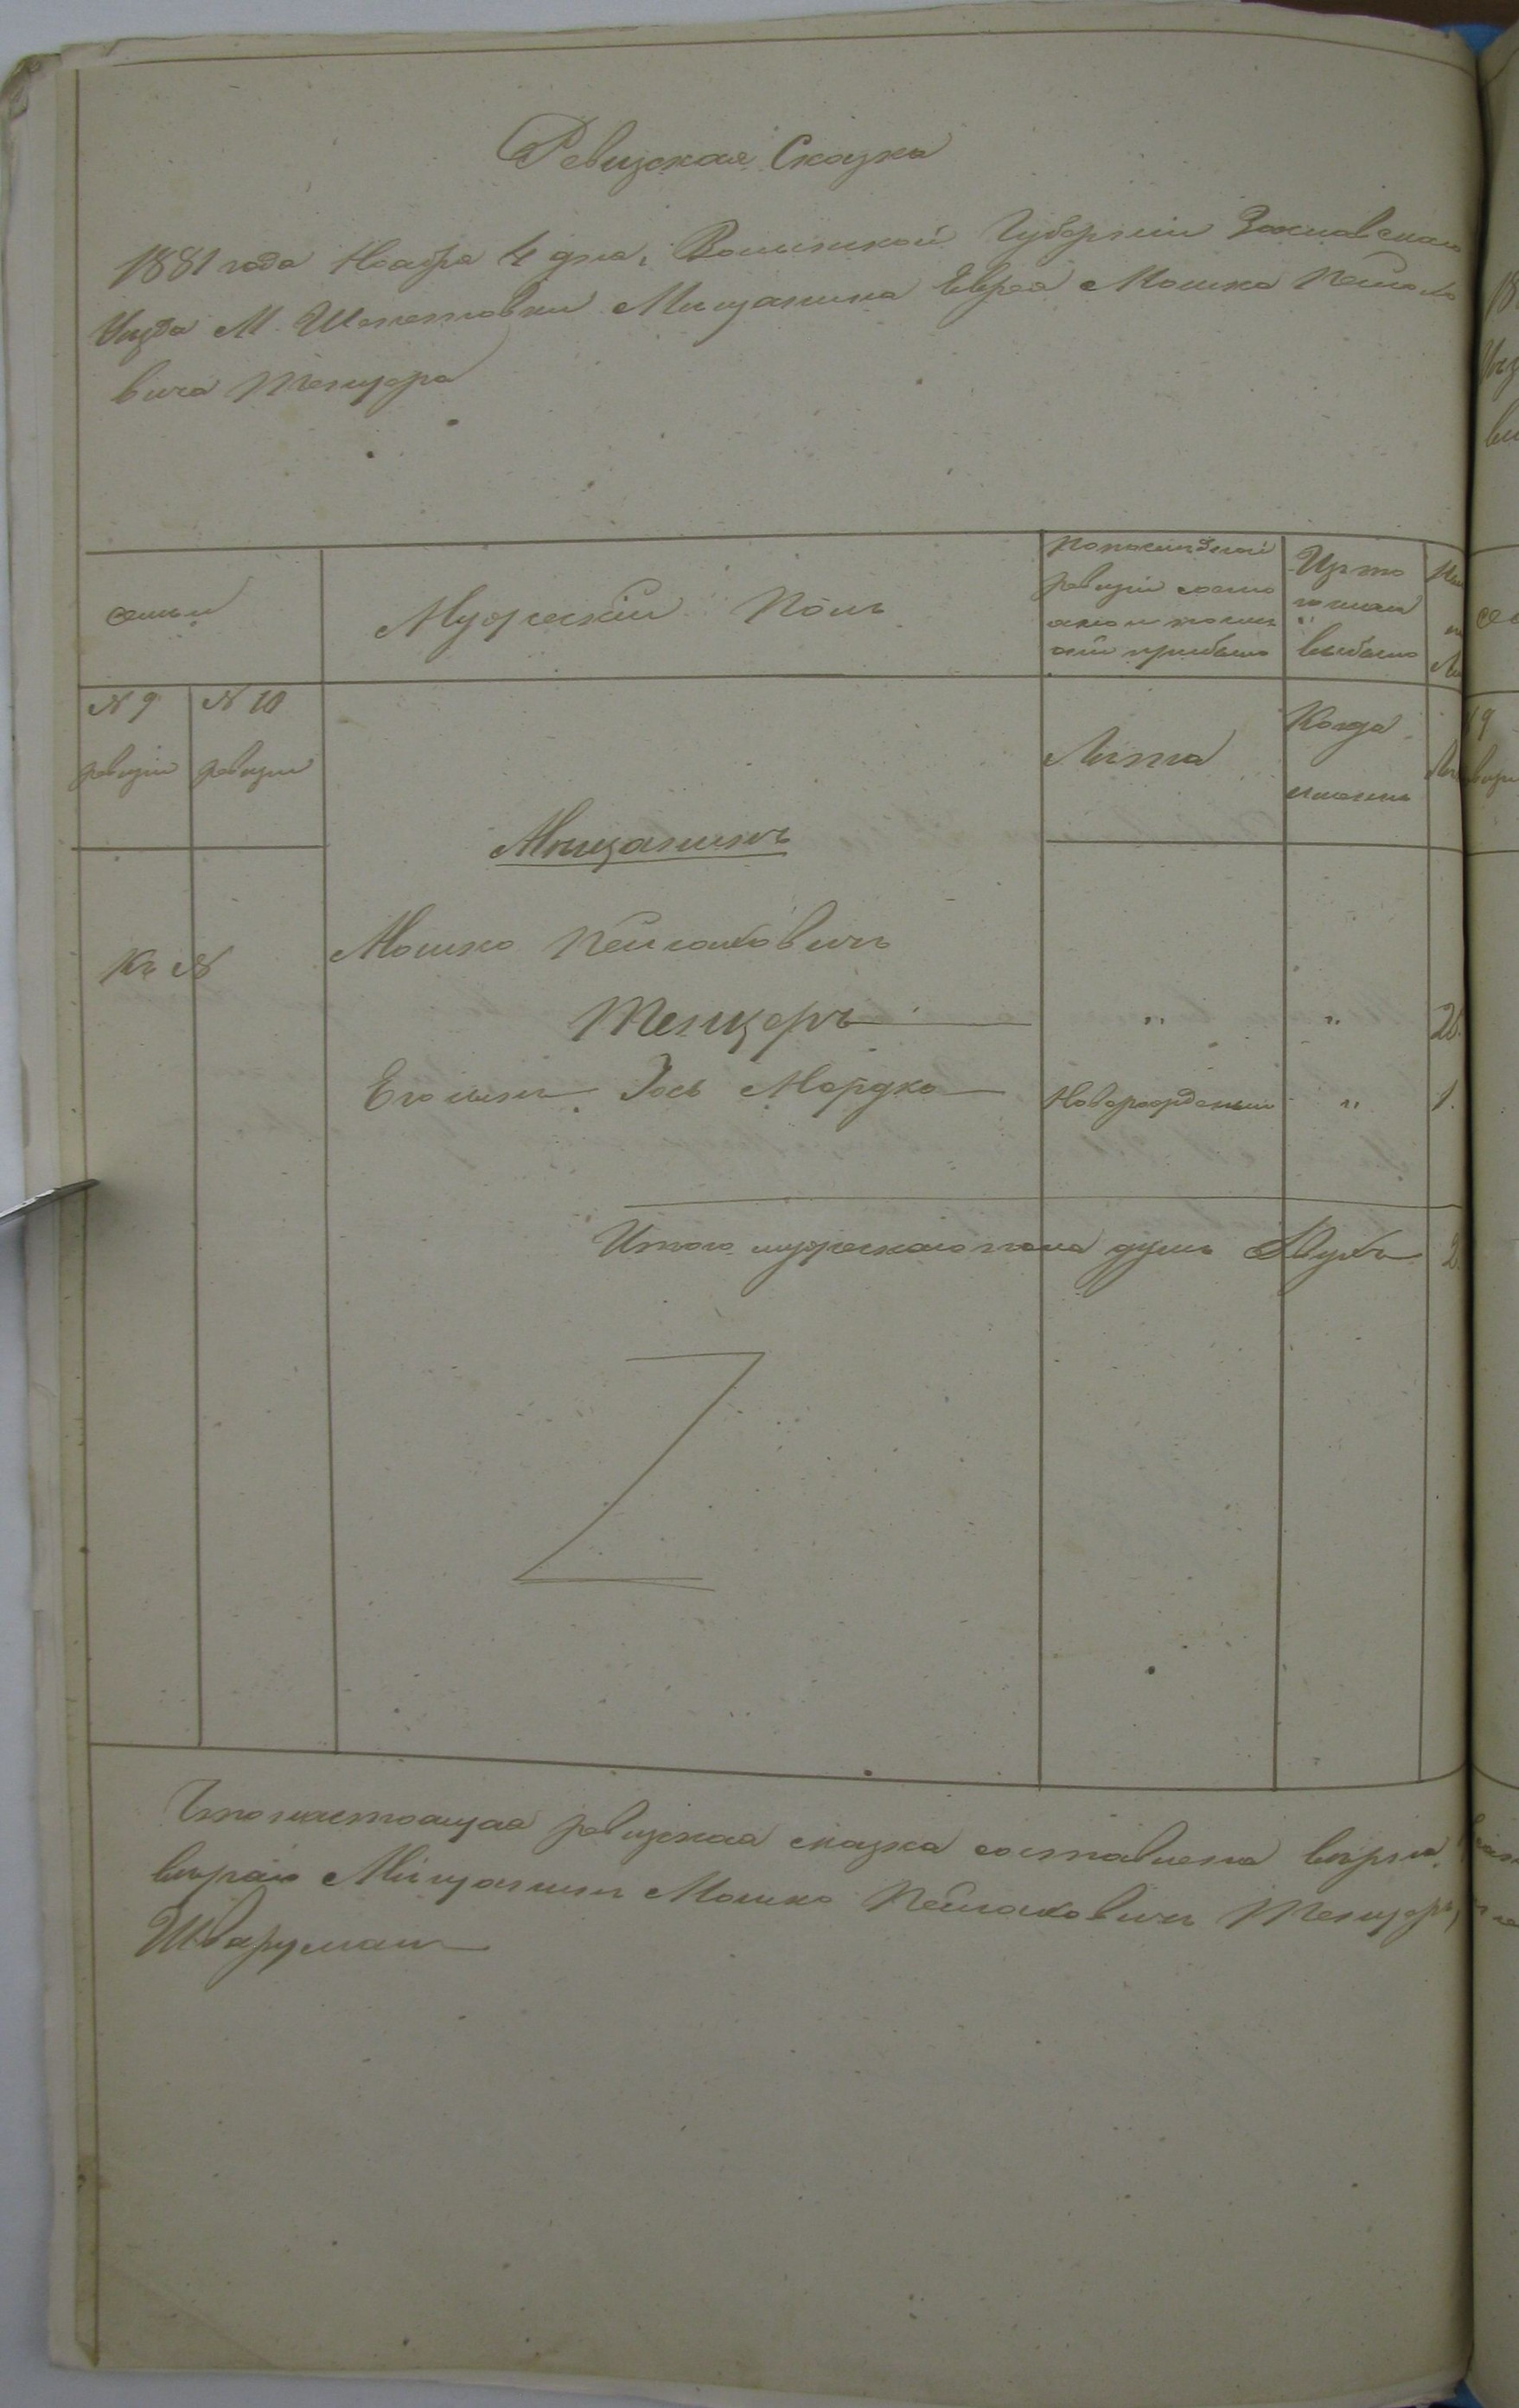 Ревизская Сказка
1881 года Ноября 4 дня, Волынской Губерніи Заславскаго
Уезда М. Шепетовки Мищанина Еврея Мошка Пейсахо
вича Тенцера
семьи
Мужескій Полъ
По последней
ревизіи состо
яло и после
оной прибыло
Изъ то
го числа
выбыло
N 9
ревизіи
N 10
ревизіи
Лѣта
Когда
именно
Мѣщанинъ
Къ N
Мошко Пейсаховичъ
Тенцеръ " " 26.
Его сынъ Йось Мордко Новорожденый " 1.
Итого мужескаго пола душъ Двухъ 2.
Что настоящая ревизская сказка составлена верно
Мищанинъ Мошко Пейсаховичъ Тенцеръ,
Шварцманъ